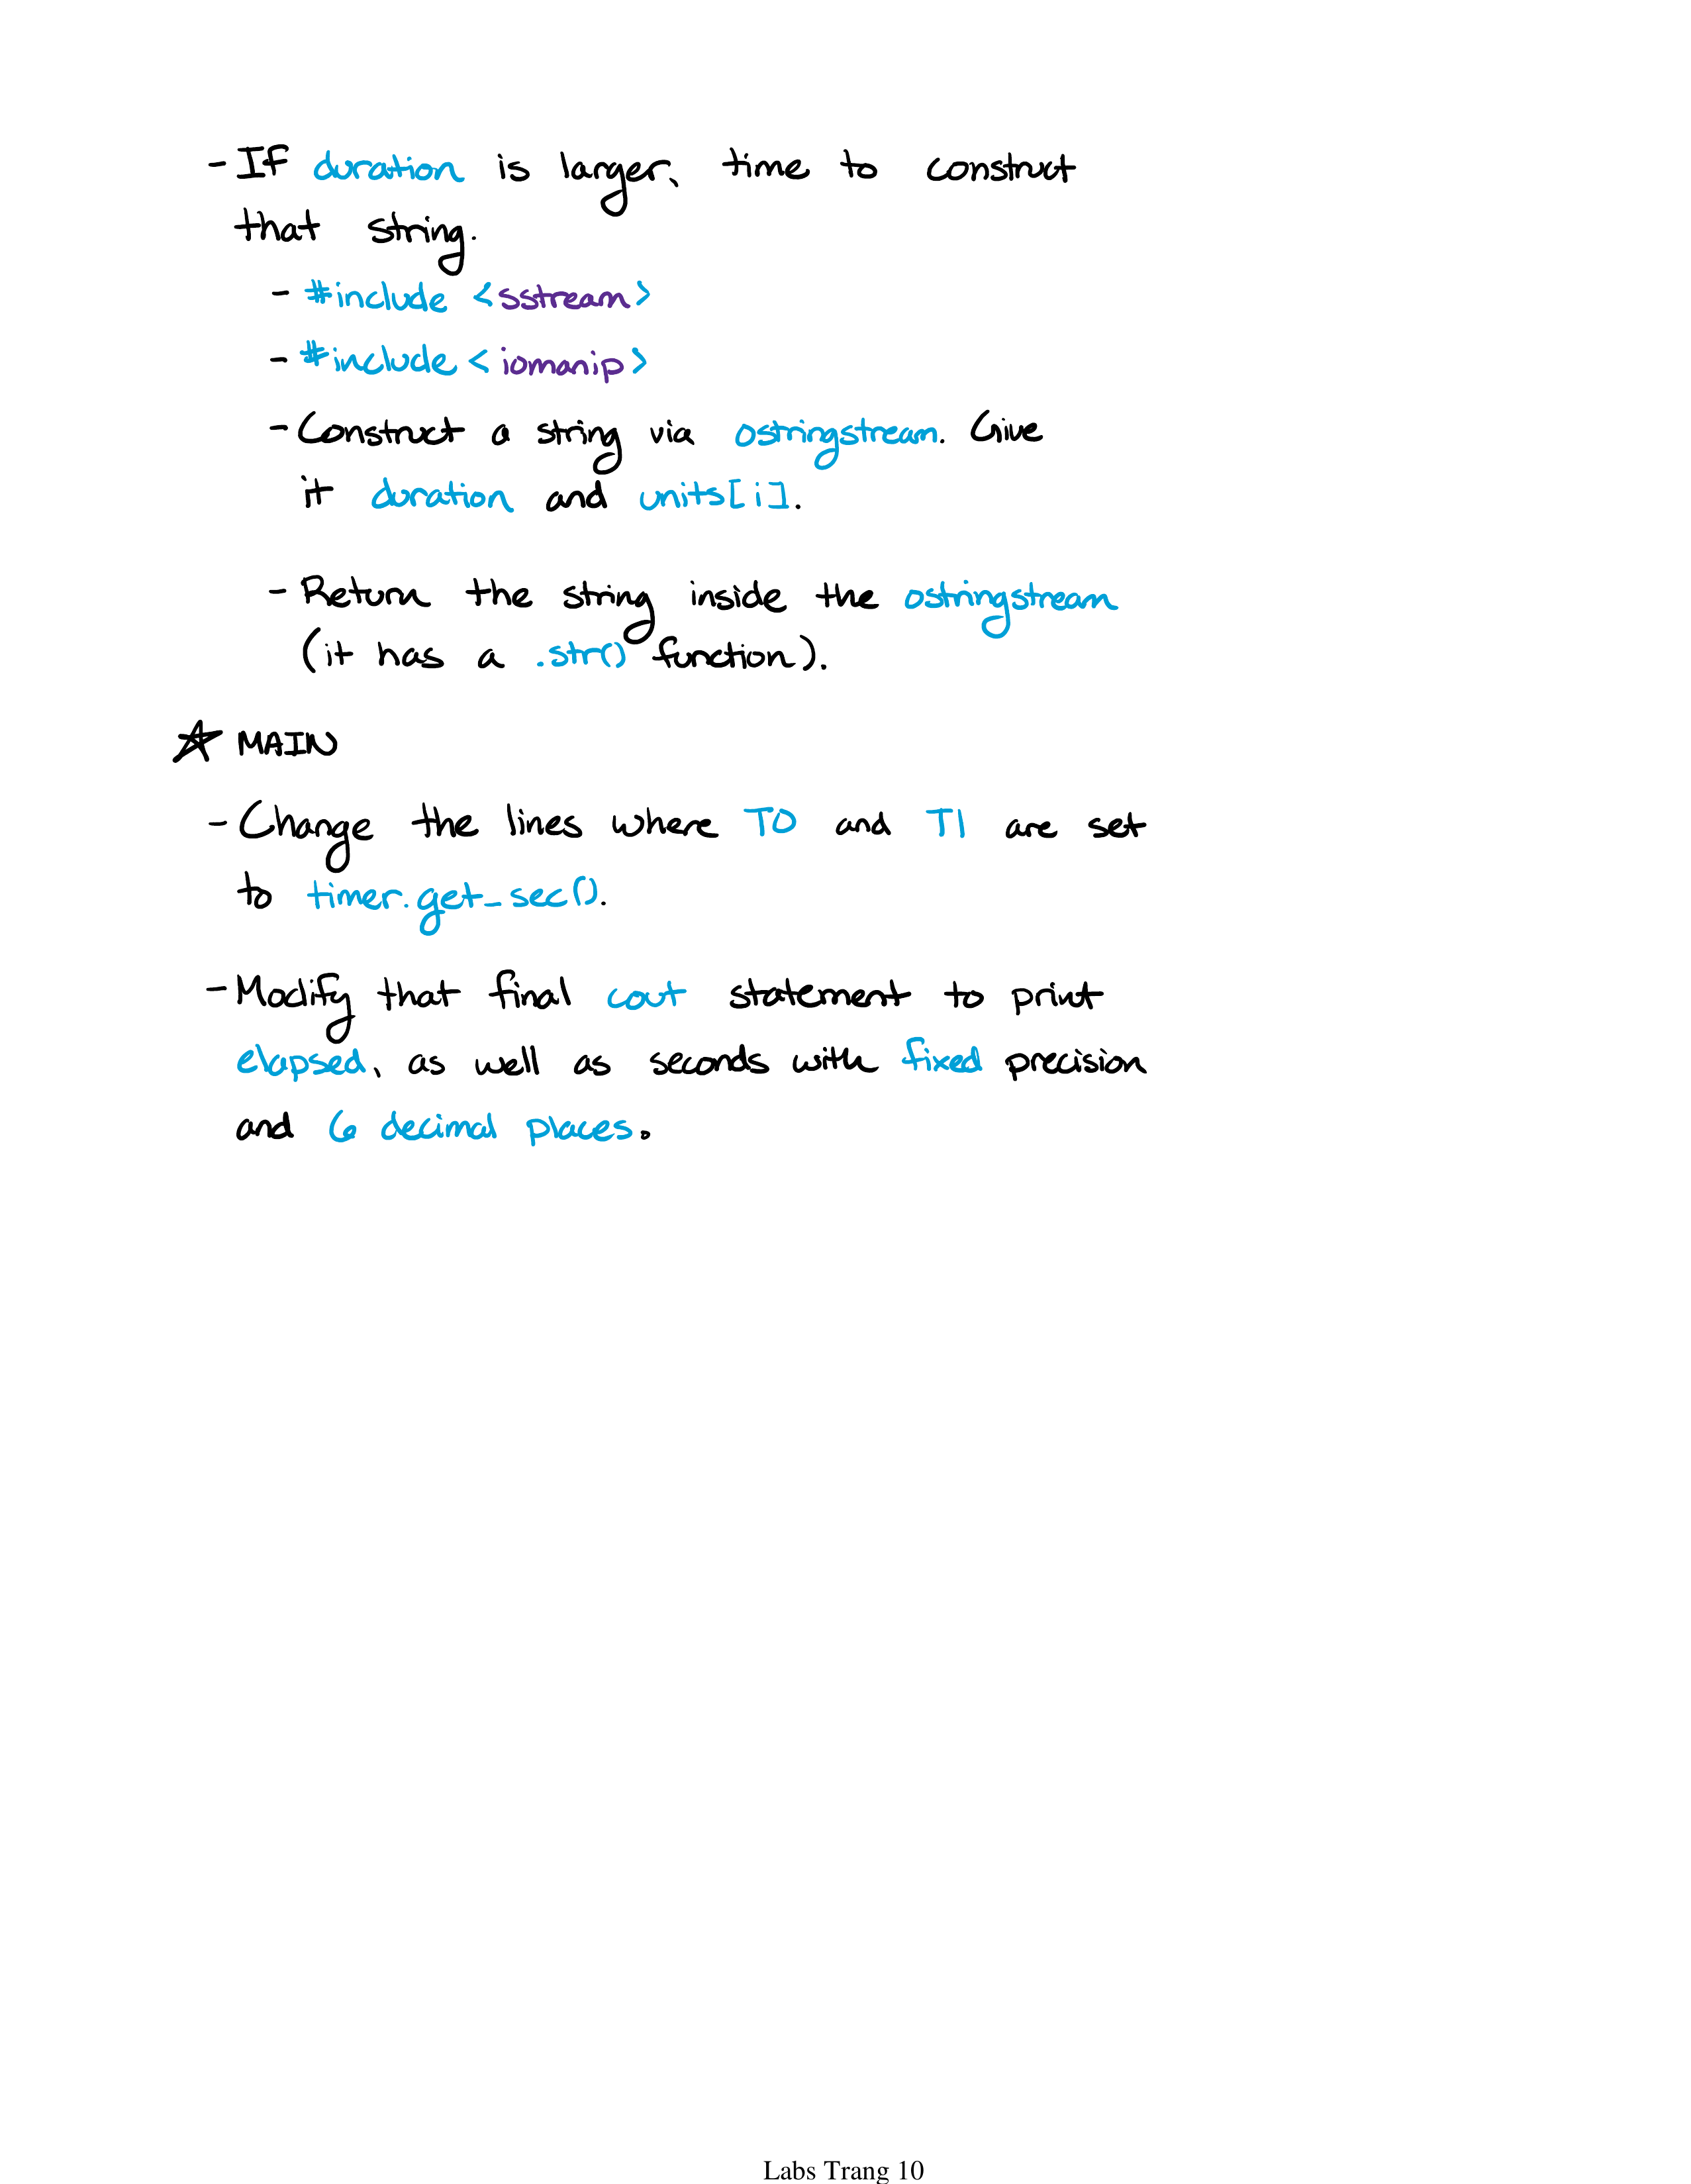 - IF duration is larger, time to construct
that string.
- #include <sstream>
- #include <iomanip>
- Construct a string via ostringstream. Give
it duration and units[i].
- Return the string inside the ostringstream
(it has a .str() function).
☆ MAIN
- Change the lines where T0 and T1 are set
to timer.get_sec().
- Modify that final cout statement to print
elapsed, as well as seconds with fixed precision
and 6 decimal places.
Labs Trang 10